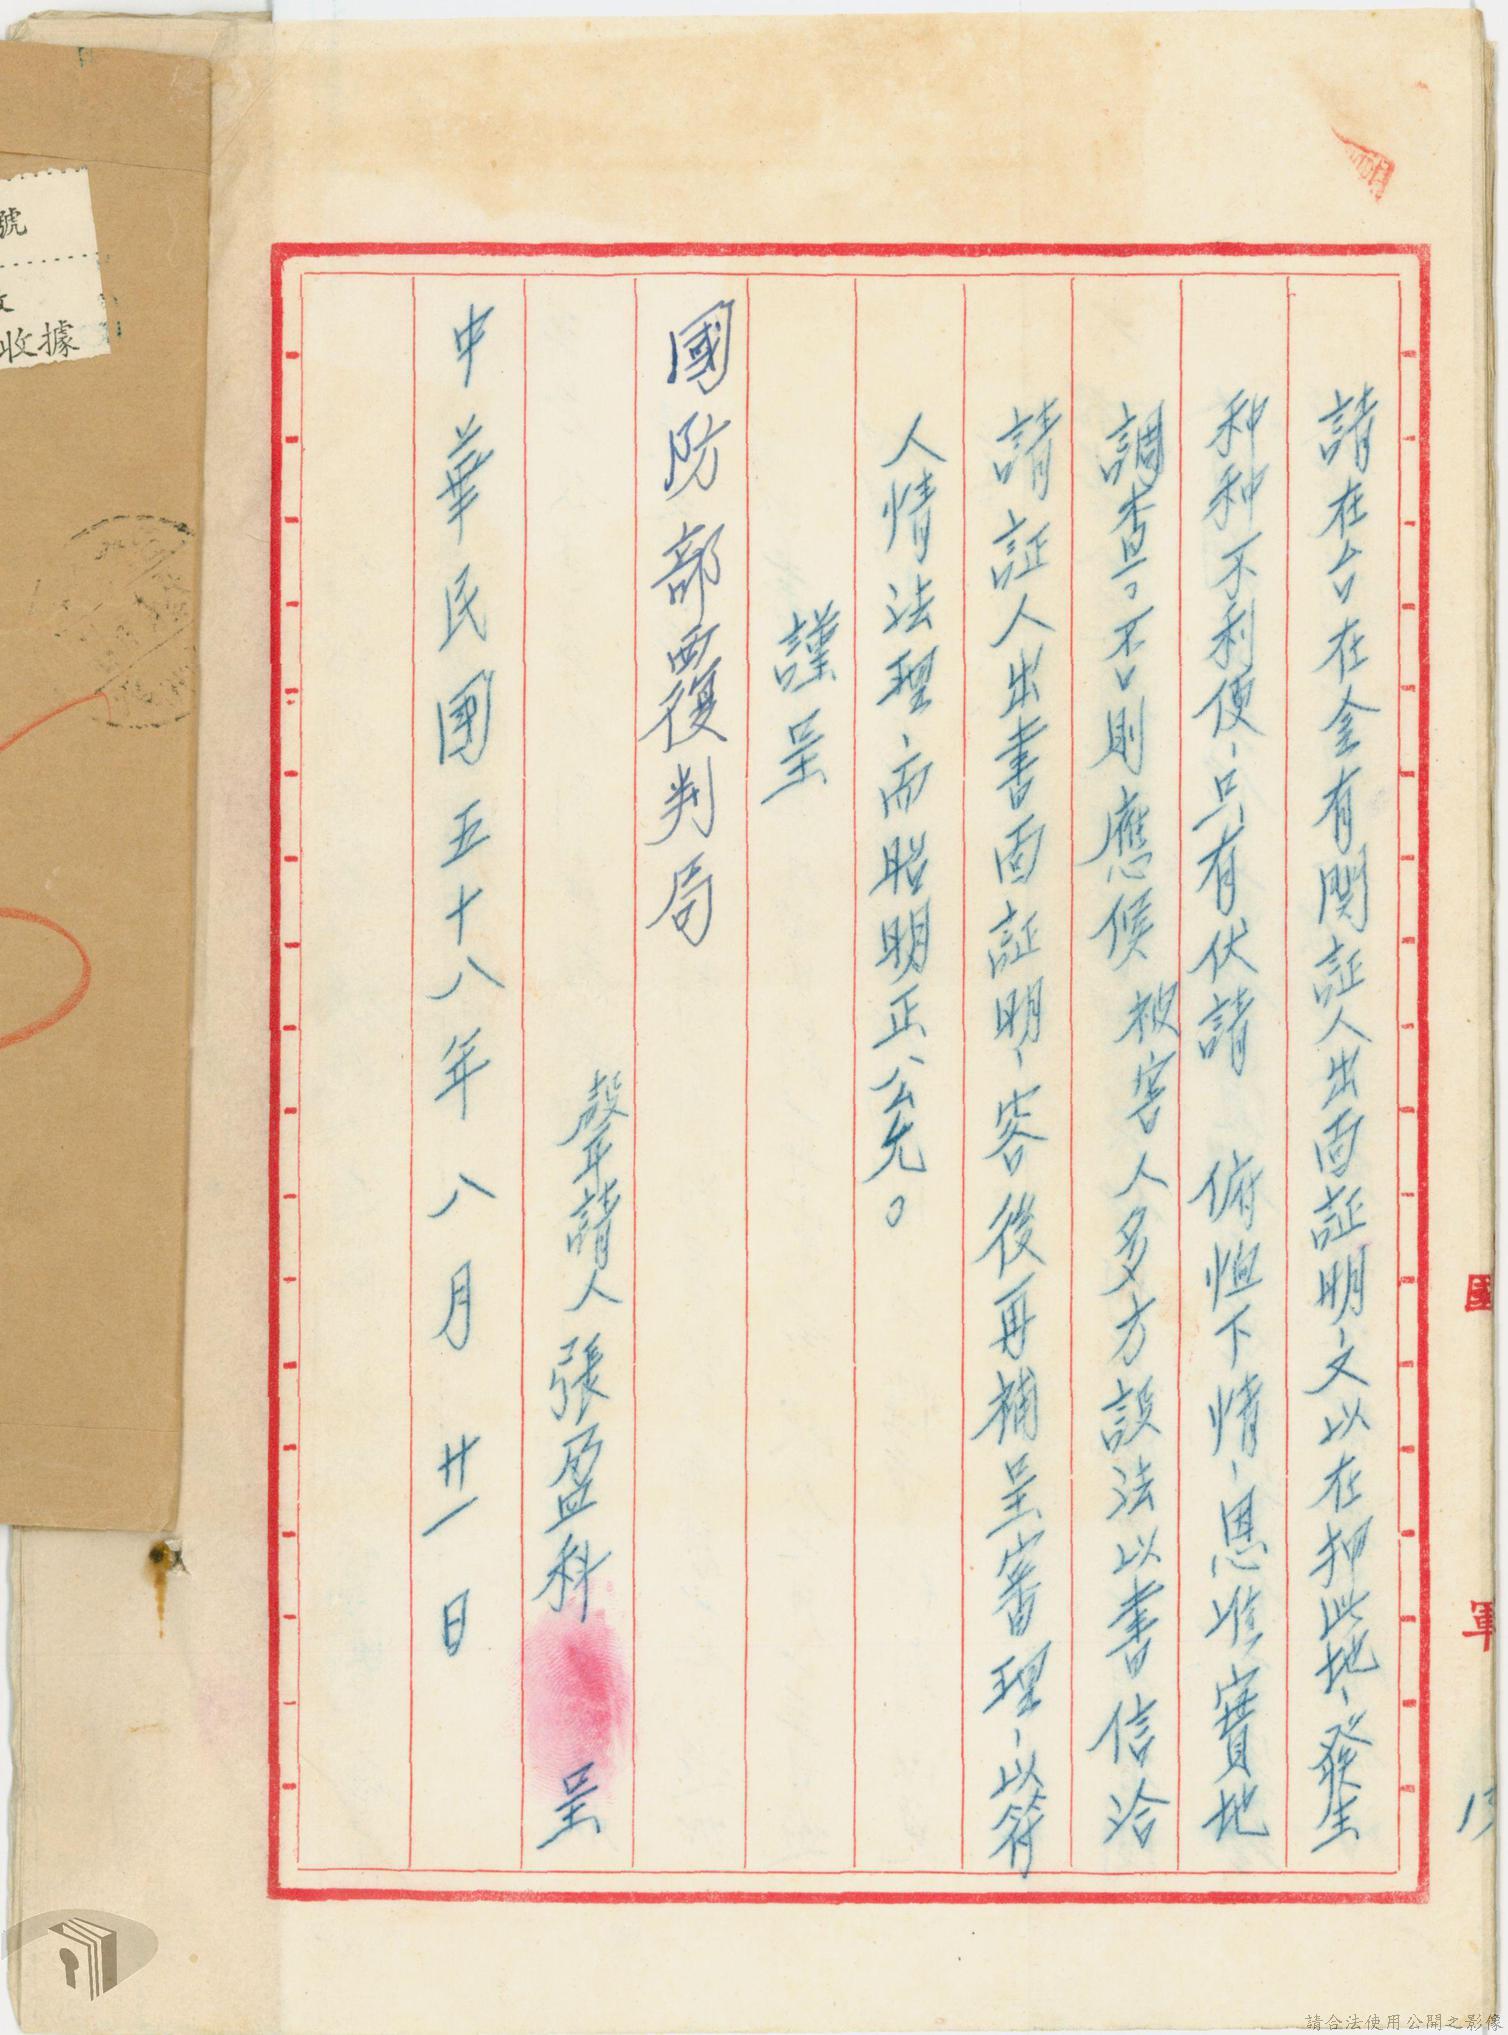 請在台在金有関証人出面証明、又以在押此地、發生
种种不利便、只有伏請 俯恤下情、恩准實地
調查。否則應候被害人多方設法以書信洽
請証人出書面証明、容後再補呈審理、以符
人情法理、而昭明正公允。
謹呈
國防部覆判局
聲請人張盈科 呈
中華民國五十八年八月廿一日
號
收據
國
軍
請合法使用公開之影像